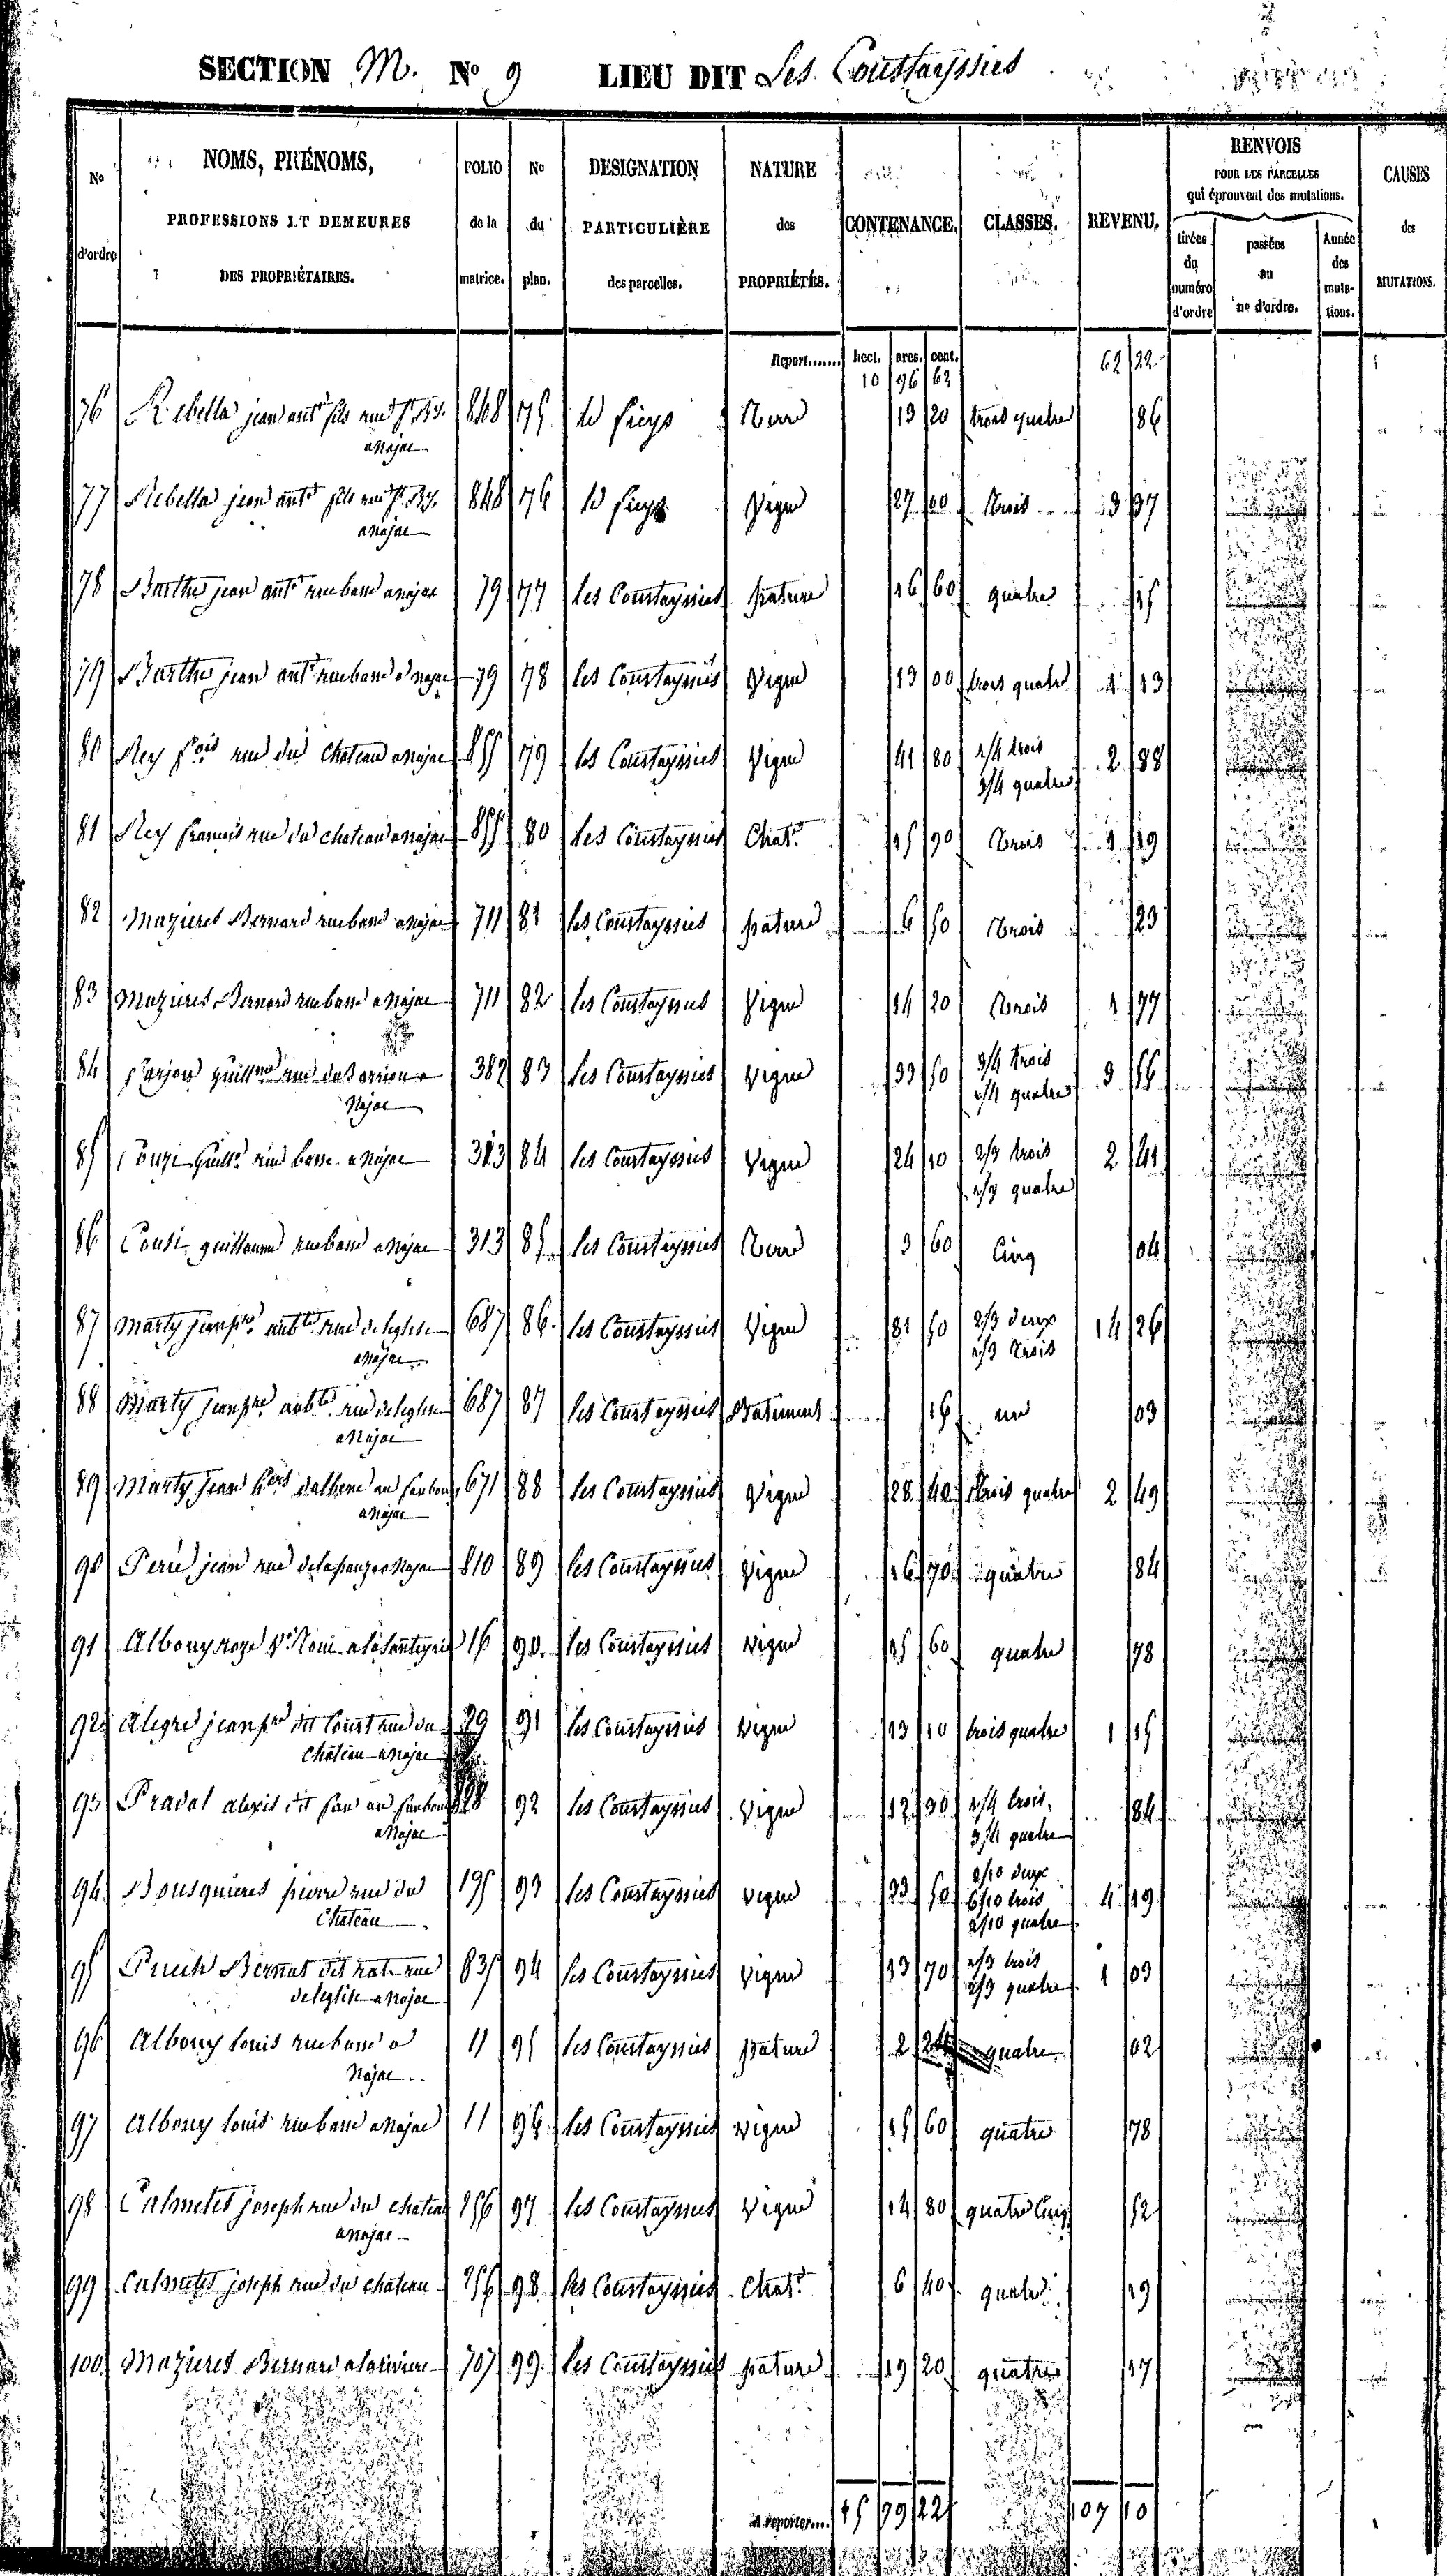 SECTION M. No 9 LIEU DIT Les Coustayssies
No d'ordre | NOMS, PRÉNOMS, PROFESSIONS ET DEMEURES DES PROPRIÉTAIRES. | FOLIO de la matrice. | No du plan. | DESIGNATION PARTICULIÈRE des parcelles. | NATURE des PROPRIÉTÉS. | CONTENANCE. | CLASSES. | REVENU. | RENVOIS POUR LES PARCELLES qui éprouvent des mutations. tirées du numéro d'ordre | passées au no d'ordre. | Année des mutations. | CAUSES des MUTATIONS.
Report....... hect. ares. cent. 62 22
10 96 62
76 Rebella jean ant fils rue 848 75 Terre 13 20 trois quatre 86
a Najac
77 Rebella jean ant fils rue 848 76 Vigne 27 00 trois 3 37
a Najac
78 Barthe jean ant rue basse a najac 79 77 les Coustayssies pature 16 60 quatre 15
79 Barthe jean ant rue basse a najac 79 78 les Coustayssies Vigne 13 00 trois quatre 1 13
80 Rey fois rue du chateau a Najac 855 79 les Coustayssies Vigne 41 80 1/4 trois 2 88
3/4 quatre
81 Rey francois rue du chateau a najac 855 80 les Coustayssies Chat. 15 90 trois 1 19
82 Mazieres Bernard rue basse a najac 711 81 les Coustayssies pature 6 50 trois 23
83 Mazieres Bernard rue basse a Najac 711 82 les Coustayssies Vigne 14 20 trois 1 77
84 guillme rue du Barriou a 382 83 les Coustayssies Vigne 33 50 3/4 trois 3 56
Najac 1/4 quatre
85 guill. rue basse a Najac 313 84 les Coustayssies Vigne 24 10 2/3 trois 2 41
1/3 quatre
86 Cousi guillaume rue basse a Najac 313 85 les Coustayssies Terre 3 60 Cinq 04
87 Marty jean pre rue de leglise 687 86 les Coustayssies Vigne 81 50 2/3 deux 14 26
a Najac 1/3 trois
88 Marty jean pre rue de leglise 687 87 les Coustayssies Batiment 16 un 03
a Najac
89 Marty jean dalbene au faubourg 671 88 les Coustayssies Vigne 28 40 trois quatre 2 49
a Najac
90 jean rue a Najac 810 89 les Coustayssies Vigne 16 70 quatre 84
91 Albouy roze 16 90 les Coustayssies vigne 15 60 quatre 78
92 Alegre jean pre dit Court rue du 29 91 les Coustayssies Vigne 13 10 trois quatre 1 15
Chateau a Najac
93 Pradal alexis dit au faubourg 92 les Coustayssies Vigne 12 30 1/4 trois 84
a Najac 3/4 quatre
94 Bousquieres pierre rue du 195 93 les Coustayssies vigne 33 50 2/10 deux
Chateau 6/10 trois 4 19
2/10 quatre
95 Puech Bernat dit rue 835 94 les Coustayssies vigne 13 70 1/3 trois 1 03
de leglise a Najac 2/3 quatre
96 Albouy louis rue basse a 11 95 les Coustayssies pature 2 24 quatre 02
Najac
97 Albouy louis rue basse a Najac 11 96 les Coustayssies vigne 15 60 quatre 78
98 Calmetes joseph rue du chateau 256 97 les Coustayssies vigne 14 80 quatre Cinq 52
a Najac
99 Calmetes joseph rue du chateau 256 98 les Coustayssies Chat. 6 40 quatre 19
100 Mazieres Bernard a lariviere 707 99 les Coustayssies pature 19 20 quatre 17
A reporter.... 15 79 22 107 10